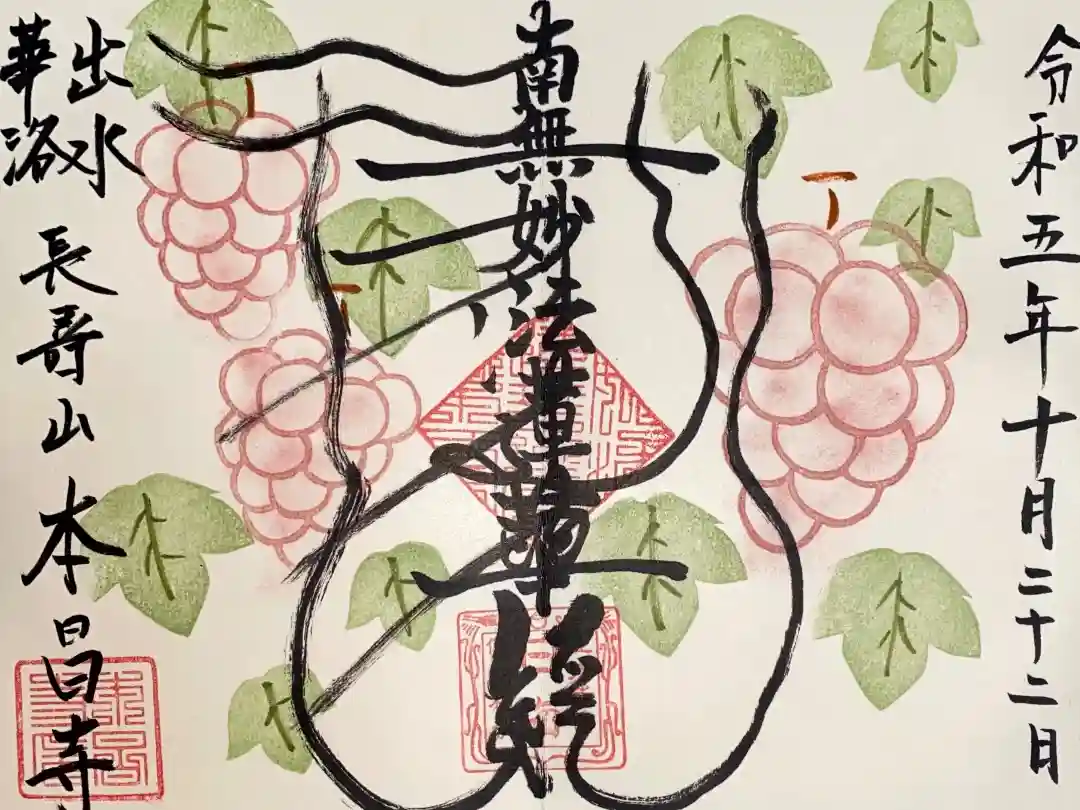 令和五年十月二十二日
南無妙法蓮華経
出水
華洛
長寿山 本昌寺